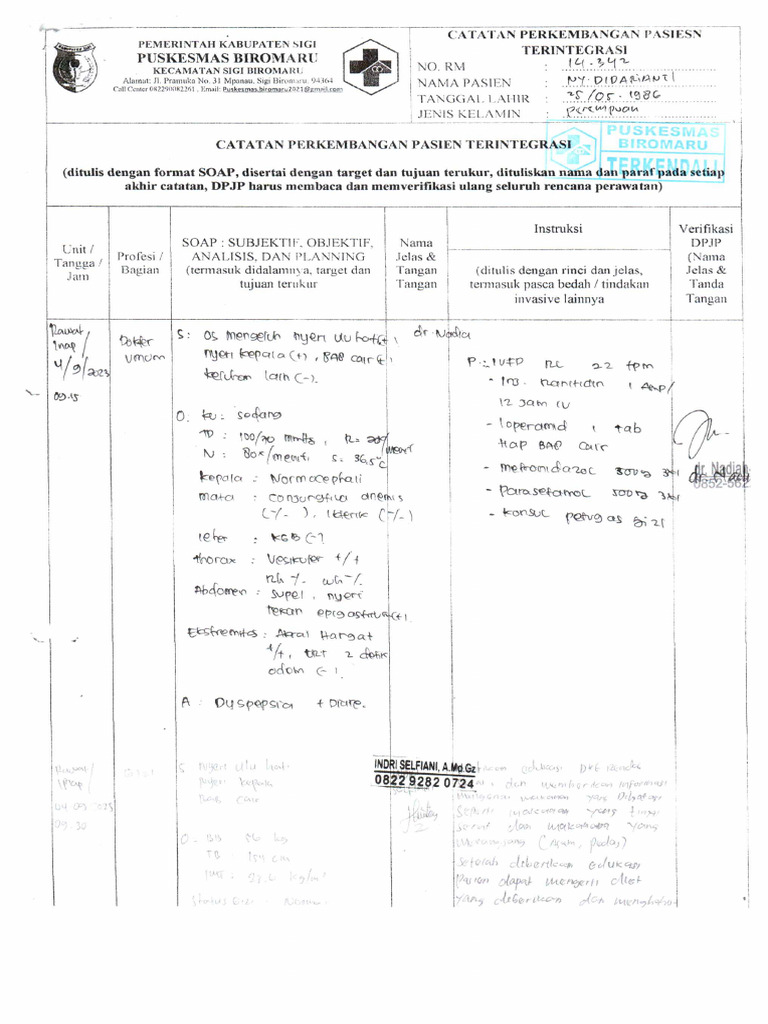 PEMERINTAH KABUPATEN SIGI
PUSKESMAS BIROMARU
KECAMATAN SIGI BIROMARU
Alamat: Jl. Pramuka No. 31 Mpanau, Sigi Biromaru, 94364
Call Center 082290082261, Email: Puskesmas.biromaru2021@gmail.com
CATATAN PERKEMBANGAN PASIESN
TERINTEGRASI
NO. RM : 14.342
NAMA PASIEN : NY. DIDARIANTI
TANGGAL LAHIR : 25/05-1986
JENIS KELAMIN : perempuan
PUSKESMAS
BIROMARU
TERKENDALI
CATATAN PERKEMBANGAN PASIEN TERINTEGRASI
(ditulis dengan format SOAP, disertai dengan target dan tujuan terukur, dituliskan nama dan paraf pada setiap
akhir catatan, DPJP harus membaca dan memverifikasi ulang seluruh rencana perawatan)
Unit /
Tangga /
Jam
Profesi /
Bagian
SOAP : SUBJEKTIF, OBJEKTIF,
ANALISIS, DAN PLANNING
(termasuk didalamnya, target dan
tujuan terukur
Nama
Jelas &
Tangan
Tangan
Instruksi
(ditulis dengan rinci dan jelas,
termasuk pasca bedah / tindakan
invasive lainnya
Verifikasi
DPJP
(Nama
Jelas &
Tanda
Tangan
Rawat/
Inap/
4/9/2023
09.15
Dokter
Umum
S : Os mengeluh nyeri ulu hati (+),
nyeri kepala (+), BAB cair (+)
keluhan lain (-).
O. KU : sedang
TD : 100/70 mmHg, R= 20x/menit
N : 80x/menit S : 36,5°C
Kepala : Normocephali
mata : conjungtiva anemis
(-/-), Ikterik (-/-)
leher : KGB (-)
thorax : Vesikuler +/+
Rh -/- wh -/-
Abdomen : supel, nyeri
tekan epigastrium (+).
Ekstremitas : Akral Hangat
+/+, CRT 2 detik
odem (-).
A : Dyspepsia + Diare.
dr. Nadia
P : IUFD RL 22 tpm
- Inj. Ranitidin 1 Amp/
12 jam IV
- loperamid 1 tab
tiap BAB cair
- metronidazol 500mg 3x1
- Parasetamol 500mg 3x1
- Konsul petugas gizi
dr. Nadiah
0852-562
Rawat/
Inap
04 09 2023
09.30
Gizi
S Nyeri ulu hati
Nyeri kepala
BAB cair
O - BB 56 kg
TB : 154 cm
Status Gizi : Normal
INDRI SELFIANI, A.Md.Gz
0822 9282 0724
edukasi Diet Rendah
dan memberikan informasi
mengenai makanan yang Dibatasi
Seperti makanan yang tinggi
serat dan makanan yang
Merangsang (Asam, pedas)
Setelah diberikan edukasi
Pasien dapat mengerti diet
yang diberikan dan